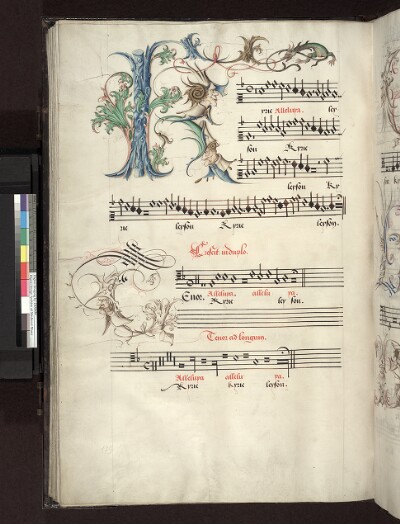 rie Alleluya. ley
son Kyrie
leyson Ky
rie leyson Kyrie leyson.
Crescit in duplo.
Tenor. Alleluya. allelu ya.
Kyrie ley son.
Tenor ad longum.
Alleluya allelu ya.
Kyrie kyrie leyson.